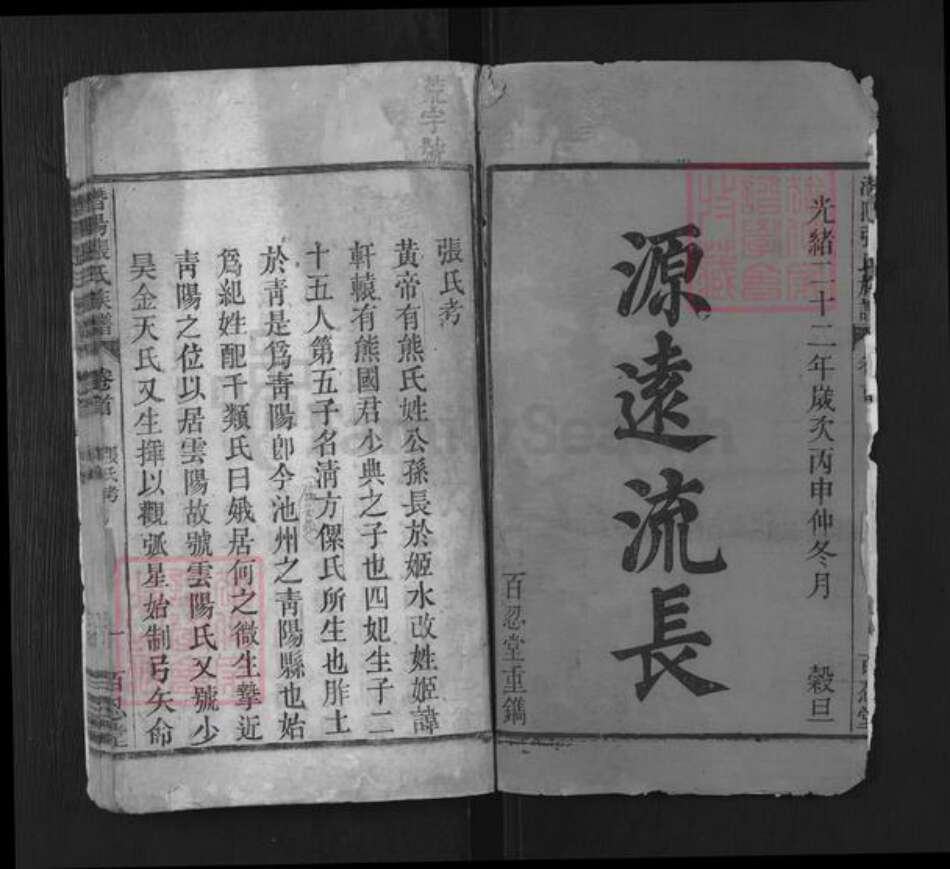 光緒二十二年歲次丙申仲冬月 穀旦
源遠流長
百忍堂重鐫
荒字號
張氏考
黃帝有熊氏姓公孫長於姬水改姓姬諱
軒轅有熊國君少典之子也四妃生子二
十五人第五子名淸方儽氏所生也胙土
於靑是爲靑陽卽今池州之靑陽縣也始
爲紀姓配千類氏曰娥居何之微生摯近
靑陽之位以居雲陽故號雲陽氏又號少
昊金天氏又生揮以觀弧星始制弓矢命
張氏族譜
卷首
張氏考
一
百忍堂